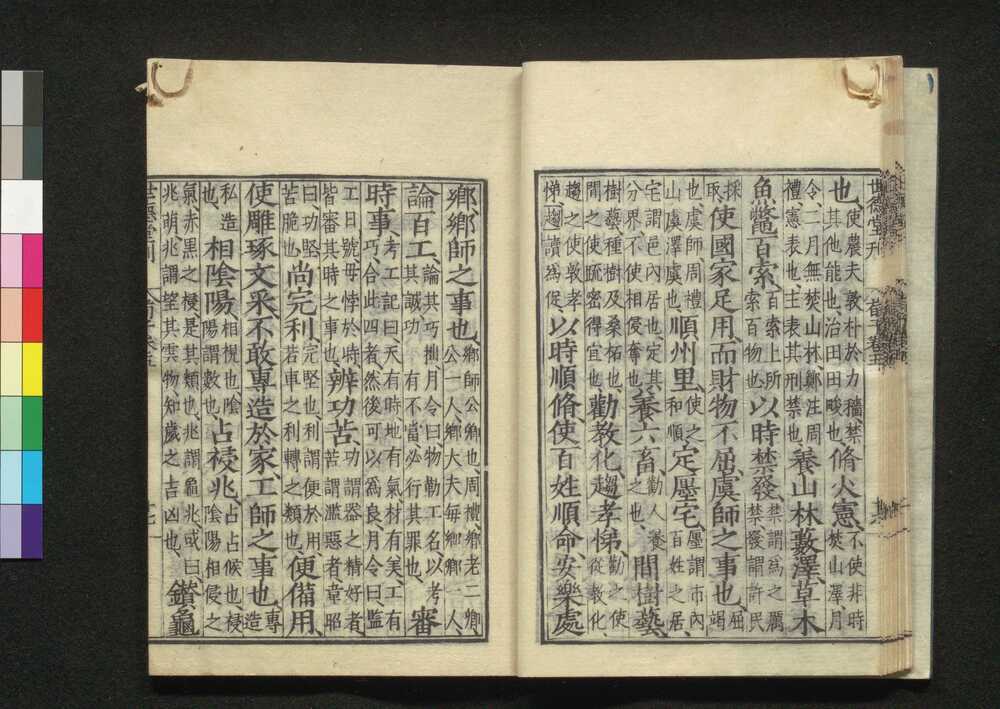 世德堂刊 荀子卷五
也、使農夫敦朴於力穡、禁其他能也、治田田畯也、脩火憲、不使非時焚山澤、月
令、二月無焚山林、鄭注周禮憲表也、主表其刑禁也、養山林藪澤、草木
魚鼈百索、百索上所索百物也、以時禁發、禁謂爲之厲禁、發謂許民
採取、使國家足用、而財物不屈、虞師之事也、屈竭
也、虞師周禮山虞澤虞也、順州里、使之和順、定廛宅、廛謂市內百姓之居、
宅謂邑內居也、定其分界不使相侵奪也、養六畜、勸人養之也、閒樹藝、
樹藝種樹及桑柘也、閒之使疏密得宜也、勸教化、趨孝悌、勸之使從教化、
趨之使敦孝悌、趨讀爲促、以時順脩、使百姓順命、安樂處
鄉、鄉師之事也、鄉師公卿也、周禮、鄉老二鄉、公一人、鄉大夫每鄉卿一人、
論百工、論其巧拙、月令曰物勒工名、以考其誠功有不當必行其罪也、審
時事、考工記曰、天有時地有氣材有美、工有巧、合此四者、然後可以爲良、月令曰、監
工日號毋悖於時皆審其時之事也、辨功苦、功謂器之精好者、苦謂濫惡者、韋昭
曰功堅苦脆也、尚完利、完堅也、利謂便於用、若車之利轉之類也、便備用、
使雕琢文采、不敢專造於家、工師之事也、專造
私造也、相陰陽、相視也、陰陽謂數也、占祲兆、占占候也、祲陰陽相侵之
氣、赤黑之祲是其類也、兆謂龜兆、或曰、兆萌兆謂望其雲物知歲之吉凶也、鑽龜